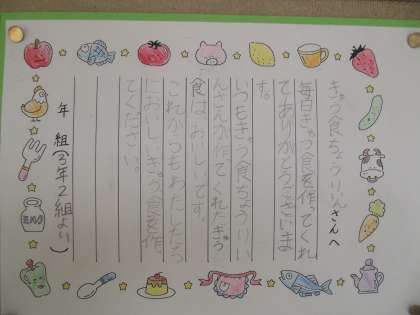 きゅう食ちょうりいんさんへ
毎日きゅう食を作ってくれ
てありがとうございま
す。
いつもきゅう食ちょうりい
んさんが作てくれたきゅう
食はおいしいです。
これからもわたしたち
においしいきゅう食を作
てください。
年 組(3年2組より)
ミルク